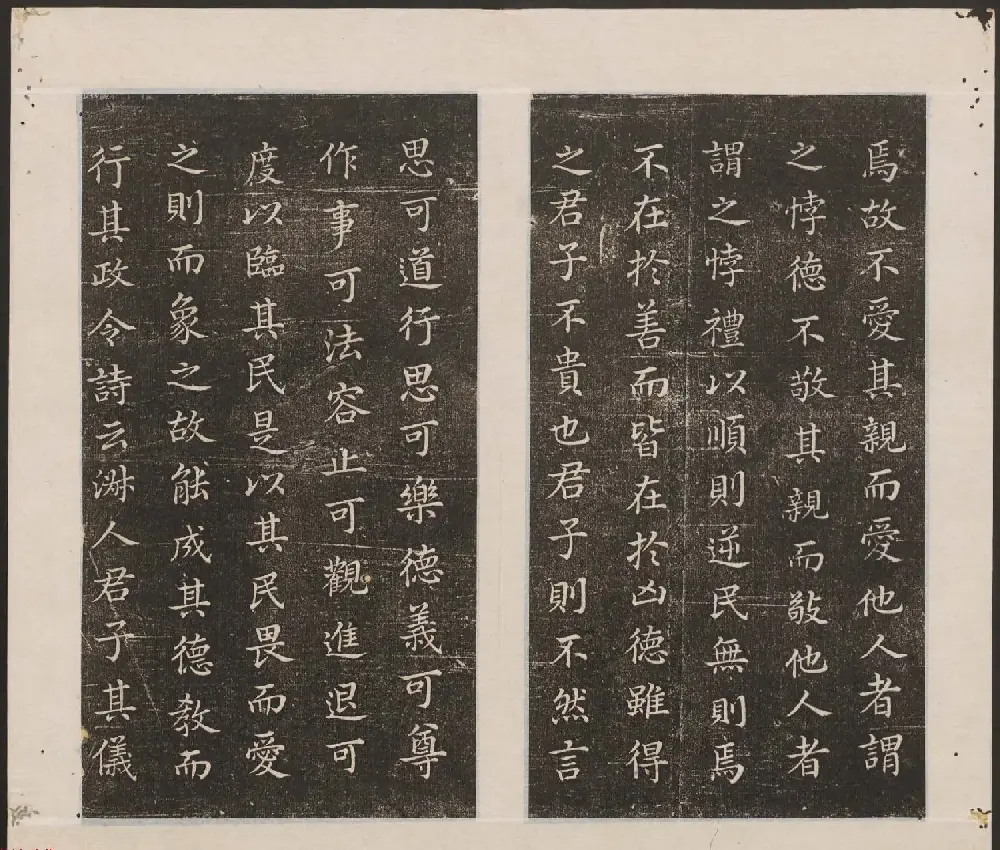 焉故不愛其親而愛他人者謂
之悖德不敬其親而敬他人者
謂之悖禮以順則逆民無則焉
不在於善而皆在於凶德雖得
之君子不貴也君子則不然言
思可道行思可樂德義可尊
作事可法容止可觀進退可
度以臨其民是以其民畏而愛
之則而象之故能成其德教而
行其政令詩云淑人君子其儀